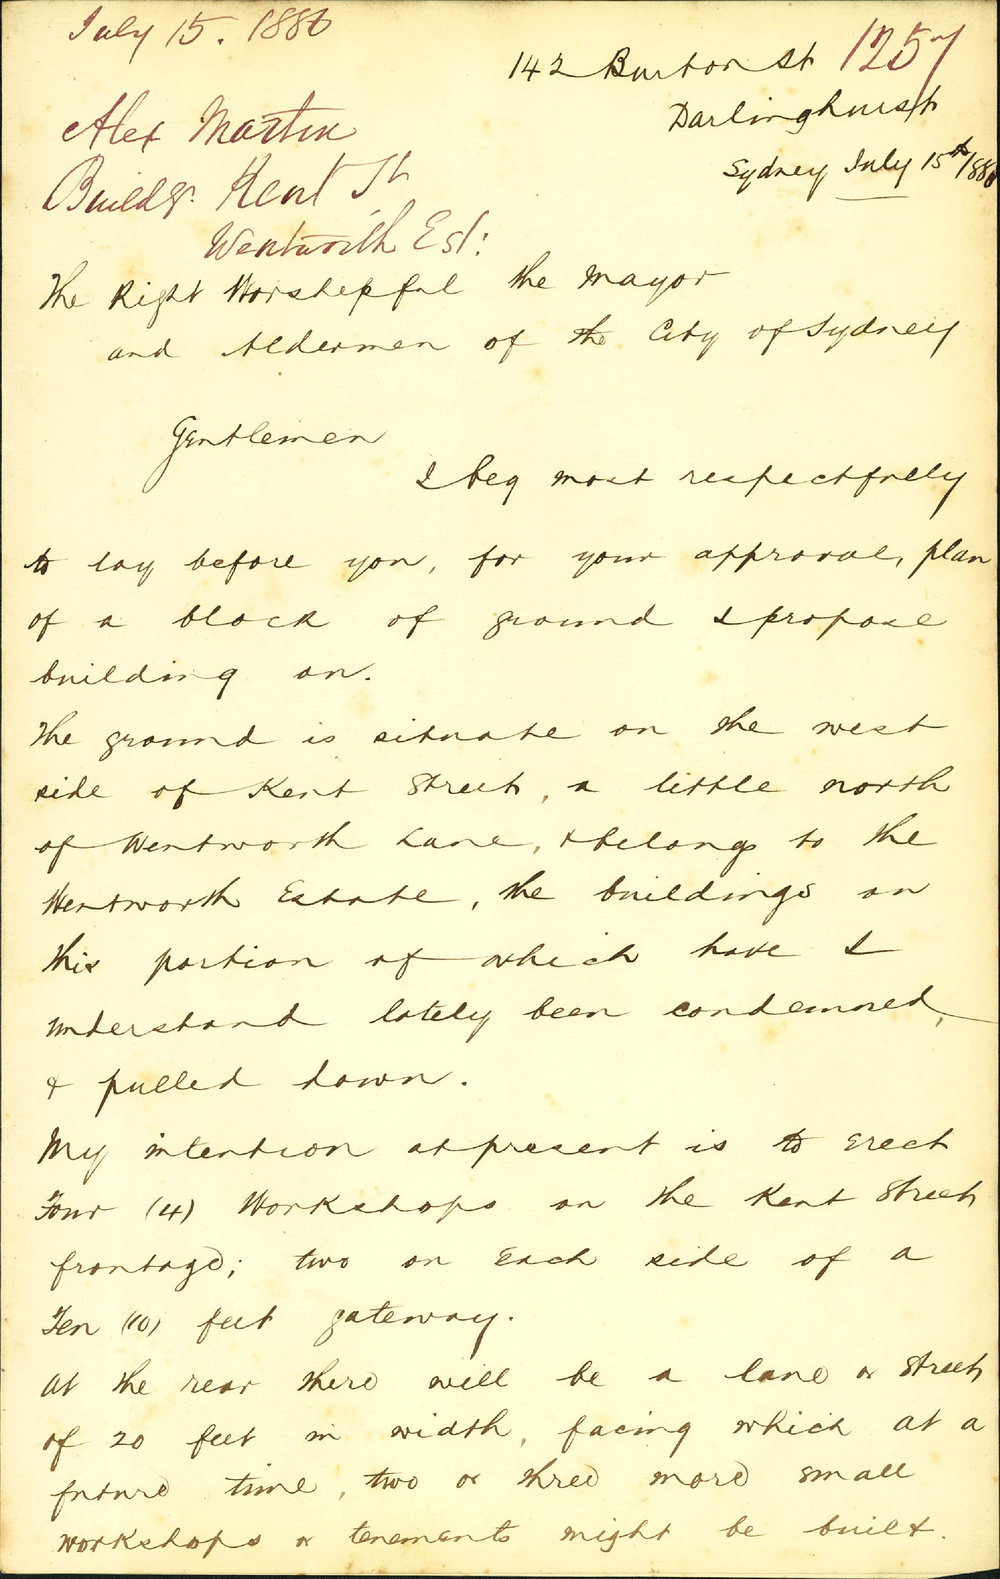 July 15. 1886
1257
142 Burton St
Darlinghurst
Sydney July 15th/886
Alex Martin
Buildg. Kent St
Wentworth Est:
The Right Worshipful the Mayor
and Aldermen of the City of Sydney
Gentlemen
I beg most respectfully
to lay before you, for your approval, plan
of a block of ground I propose
building on.
The ground is situate on the west
side of Kent Street, a little north
of Wentworth Lane, & belongs to the
Wentworth Estate, the buildings on
this portion of which have I
understand lately been condemned,
& pulled down.
My intention at present is to erect
Four (4) Workshops on the Kent Street
frontage; two on each side of a
Ten (10) feet gateway.
At the rear there will be a lane or street
of 20 feet in width, facing which at a
future time, two or three more small
workshops or tenements might be built.